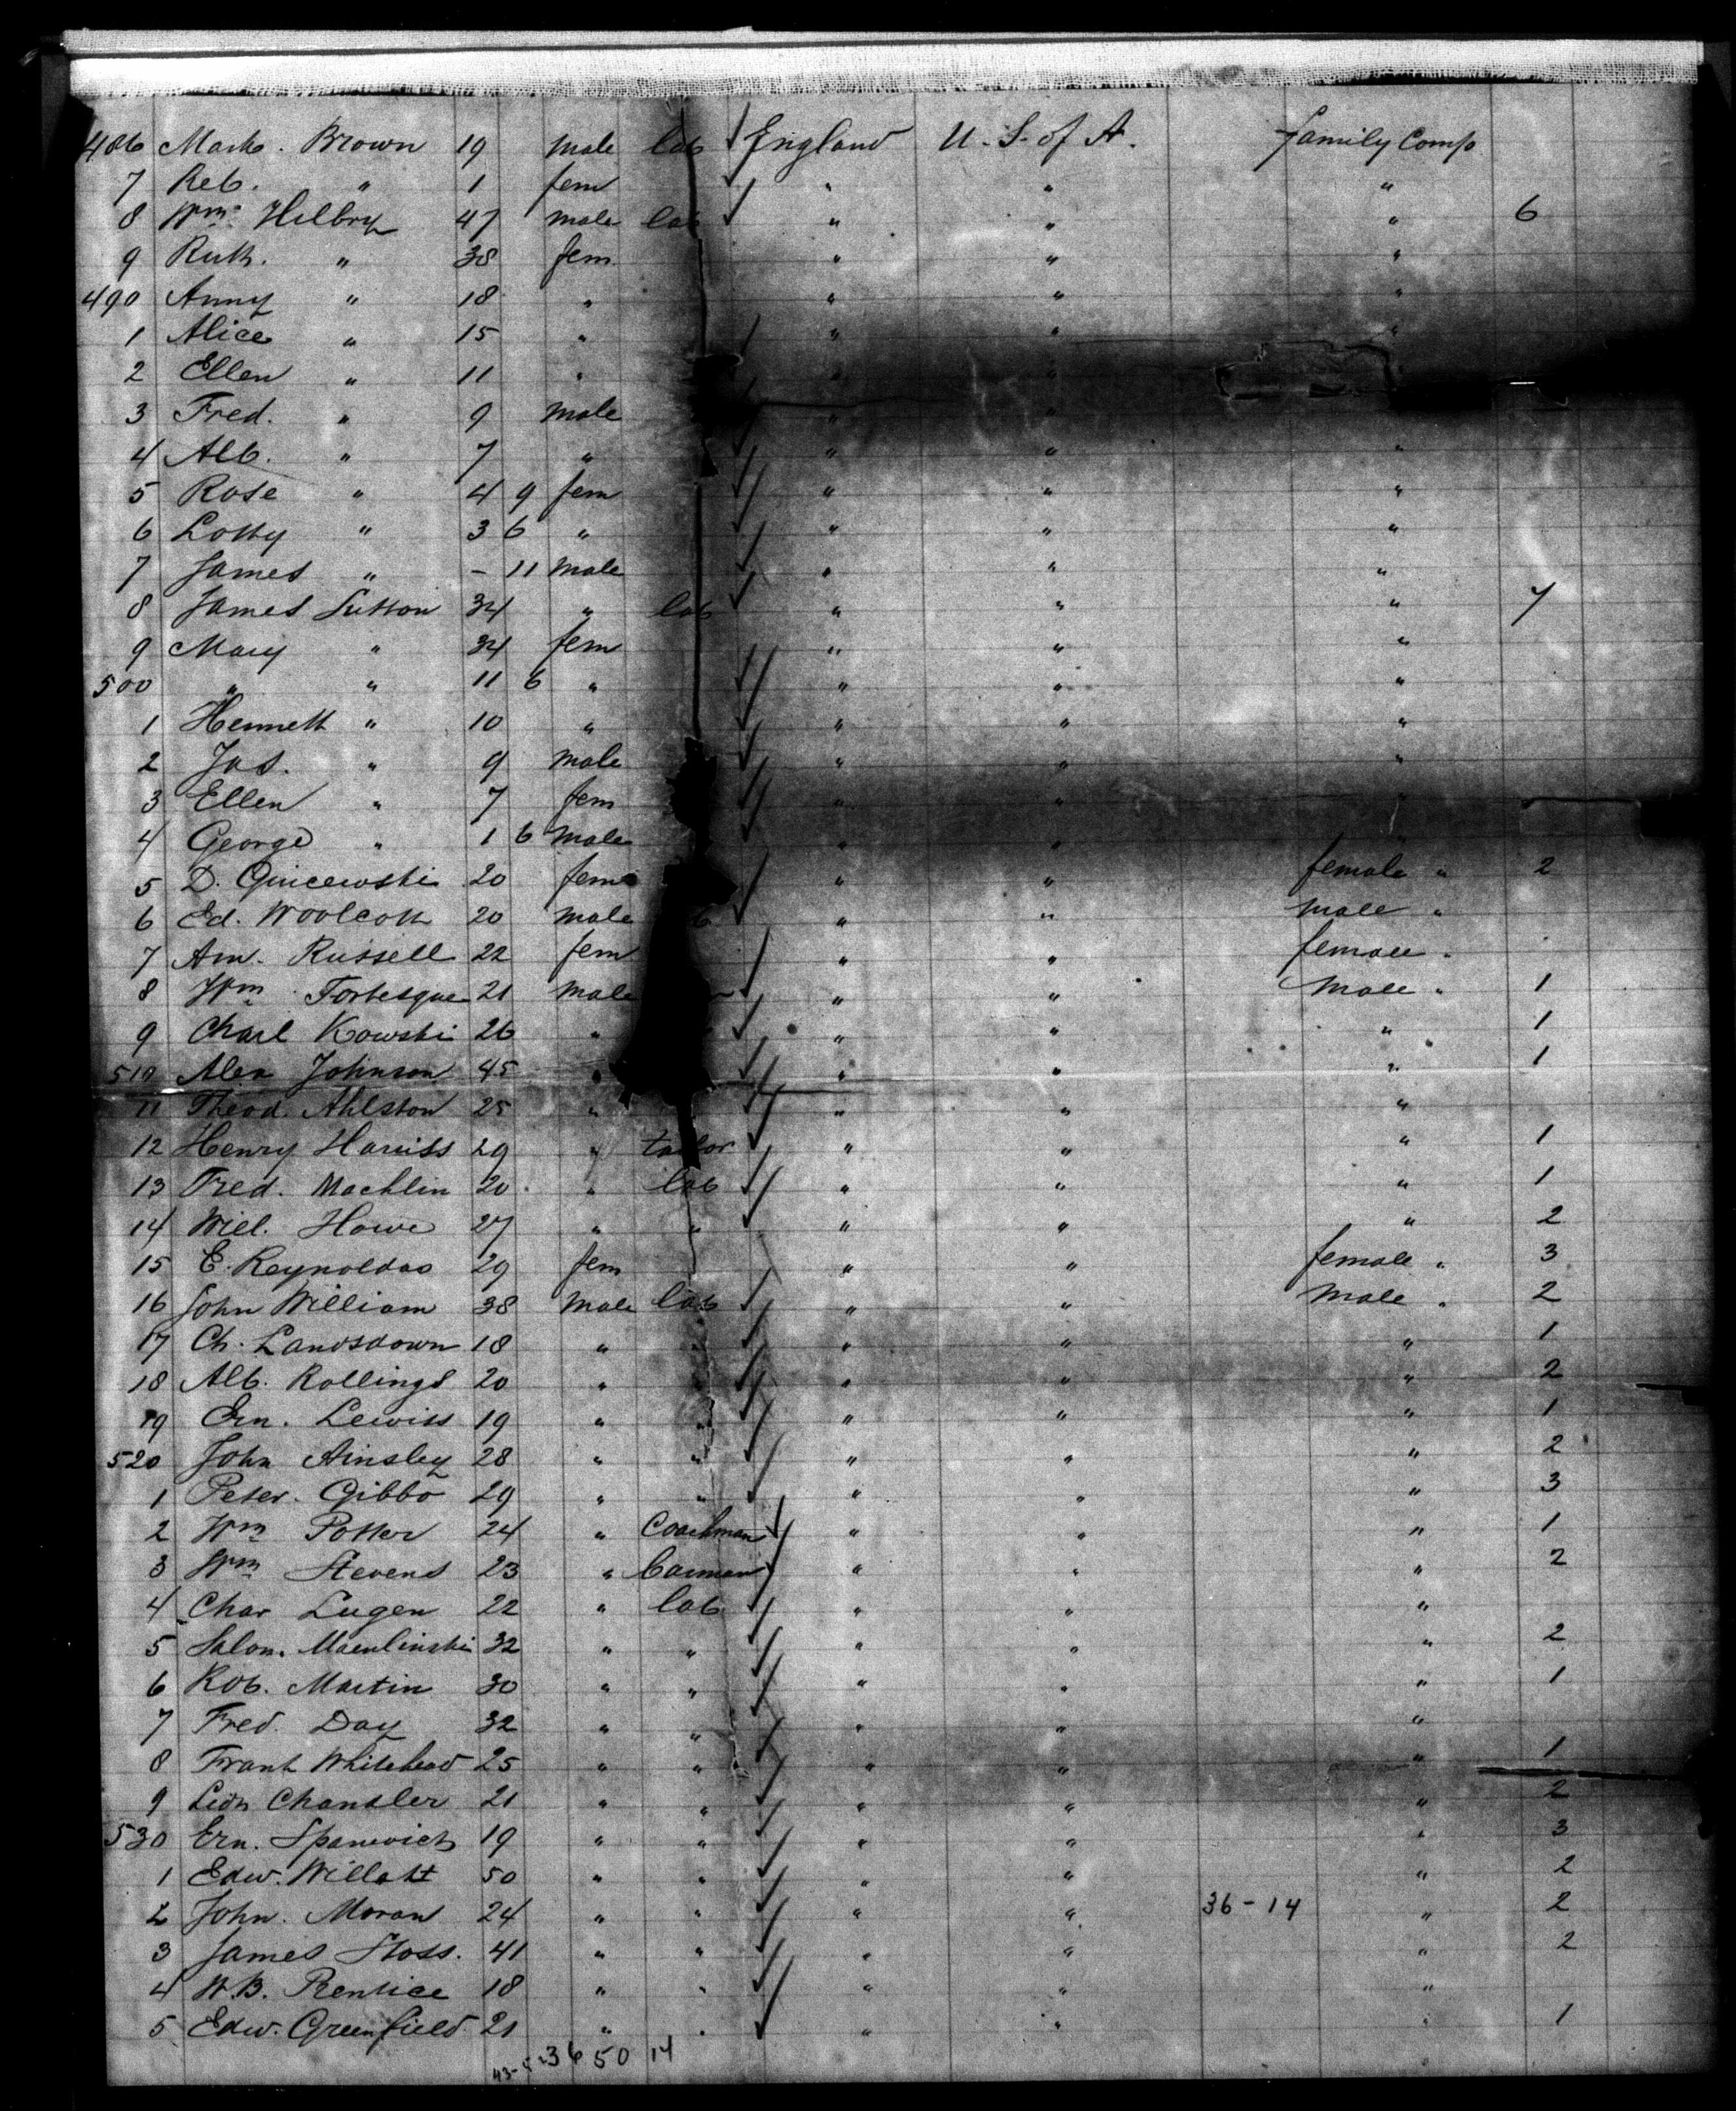 486 Mark. Brown 19 male lab England U. S. of A. family Comp
7 Reb. " 1 fem " " "
8 Wm. Hilbry 47 male lab " " " 6
9 Ruth. " 38 fem. " " "
490 Anny " 18 " " " "
1 Alice " 15 " " " "
2 Ellen " 11 " " "
3 Fred. " 9 male " "
4 Alb. " 7 " " " "
5 Rose " 4 9 fem " " "
6 Lotty " 3 6 " " " "
7 James " - 11 male " " "
8 James Sutton 34 " lab " " " 7
9 Mary " 34 fem " " "
500 " " 11 6 " " " "
1 Hennett " 10 " " " "
2 Jas. " 9 male " " "
3 Ellen " 7 fem " "
4 George " 1 6 male " "
5 D. 20 fem " " female " 2
6 Ed. Woolcott 20 male " " male "
7 Am. Russell 22 fem " " female "
8 Wm Fortesque 21 male " " male " 1
9 Charl Kowski 26 " " " " 1
510 Alex Johnson 45 " " " " 1
11 Theod. Ahlston 25 " " " "
12 Henry Harriss 29 " tailor " " " 1
13 Fred. Machlin 20 " lab " " " 1
14 Will. Howe 27 " " " " " 2
15 E. Reynoldas 29 fem " " female " 3
16 John William 38 male lab " " male " 2
17 Ch. Landsdown 18 " " " " " 1
18 Alb. Rollings 20 " " " " " 2
19 Ern. Lewiss 19 " " " " " 1
520 John Ainsley 28 " " " " " 2
1 Peter. Gibbo 29 " " " " " 3
2 Wm Potter 24 " Coachman " " " 1
3 Wm Stevens 23 " Carman " " " 2
4 Char Lugen 22 " lab " " "
5 Salom. 32 " " " " " 2
6 Rob. Martin 30 " " " " " 1
7 Fred. Day 32 " " " " "
8 Frank Whitehead 25 " " " " " 1
9 Leon Chandler 21 " " " " " 2
530 Ern. Spanovich 19 " " " " " 3
1 Edw. Willott 50 " " " " 2
2 John. Moran 24 " " " " 36-14 " 2
3 James Stoss. 41 " " " " " 2
4 W.B. Prentice 18 " " " " "
5 Edw. Greenfield 21 " " " " " 1
36 50 14